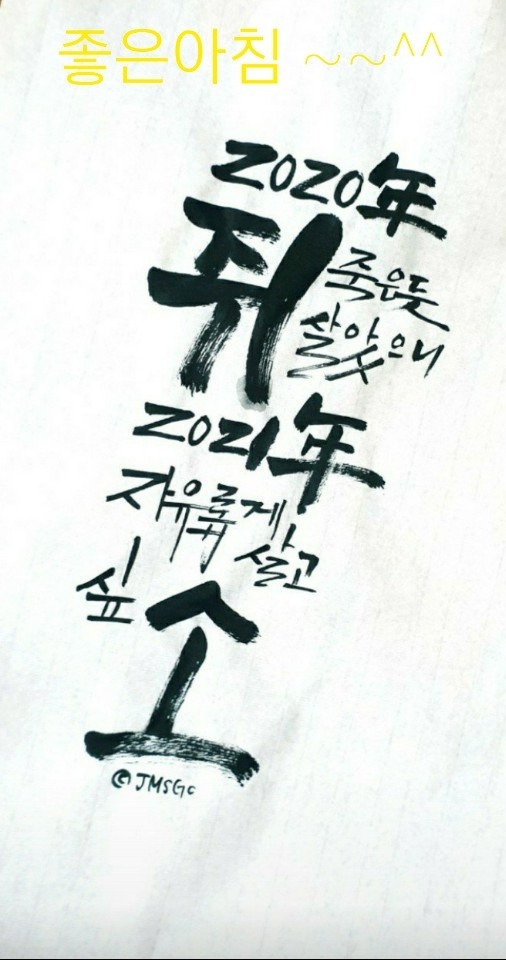 좋은아침 ~~^^
2020年
쥐 죽은듯
살았으니
2021年
자유롭게 살고
싶소
@JMSGc